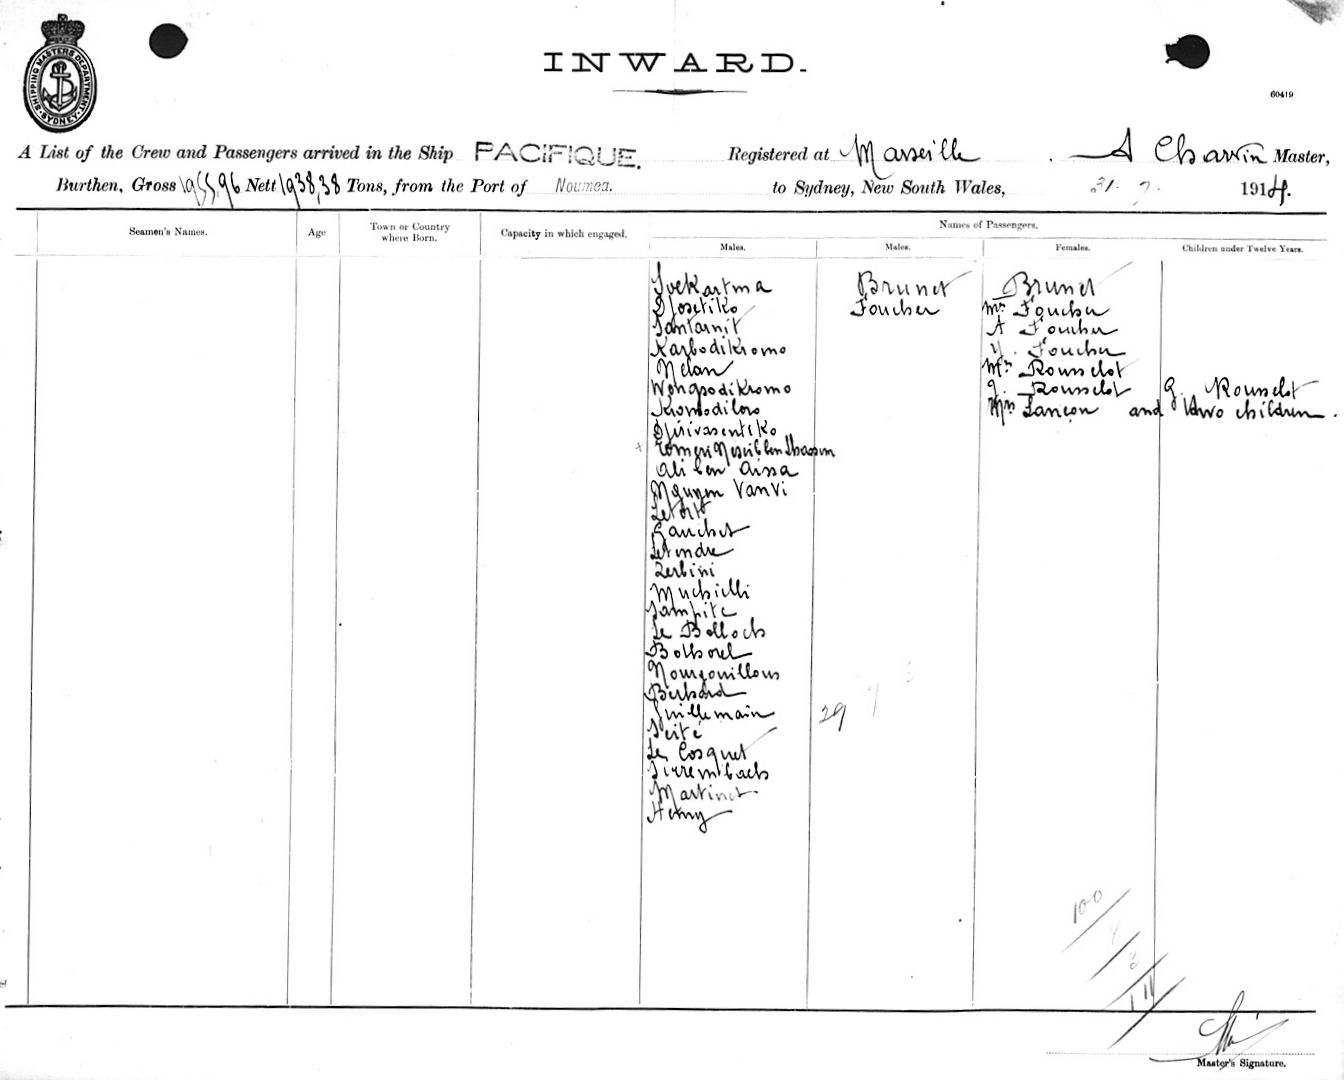 SHIPPING MASTERS DEPARTMENT SYDNEY
INWARD.
60419
A List of the Crew and Passengers arrived in the Ship PACIFIQUE. Registered at Marseille A Charvin Master,
Burthen, Gross 1955,96 Nett 1938,38 Tons, from the Port of Noumea. to Sydney, New South Wales, 31. 7. 1914.
Seamen's Names. Age Town or Country where Born. Capacity in which engaged. Names of Passengers.
Males. Males. Females. Children under Twelve Years.
Svekartma Brunet Brunet
Djosetiko Foucher Mrs Foucher
Santarnit A Foucher
Karbodikromo Y. Foucher
Nelan Mrs Rousselot
Wongsodikromo J. Rousselot G. Rousselot
Kromodiloro Mrs Lançon and two children.
Djirivasentiko
Ali ben Aissa
Nguyen Van Vi
Letort
Gauchet
Letendre
Zerbini
Muchielli
Sampite
Le Bolloch
Bothorel
Nourgouillous
Birhard
Guillemain 29
Seité
Le Cosquet
Sirrembach
Martinet
Henry
100
3
111
Master's Signature.